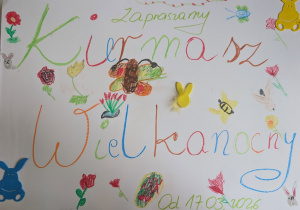 Zapraszamy
Kiermasz
Wielkanocny
Od 17.03.2026